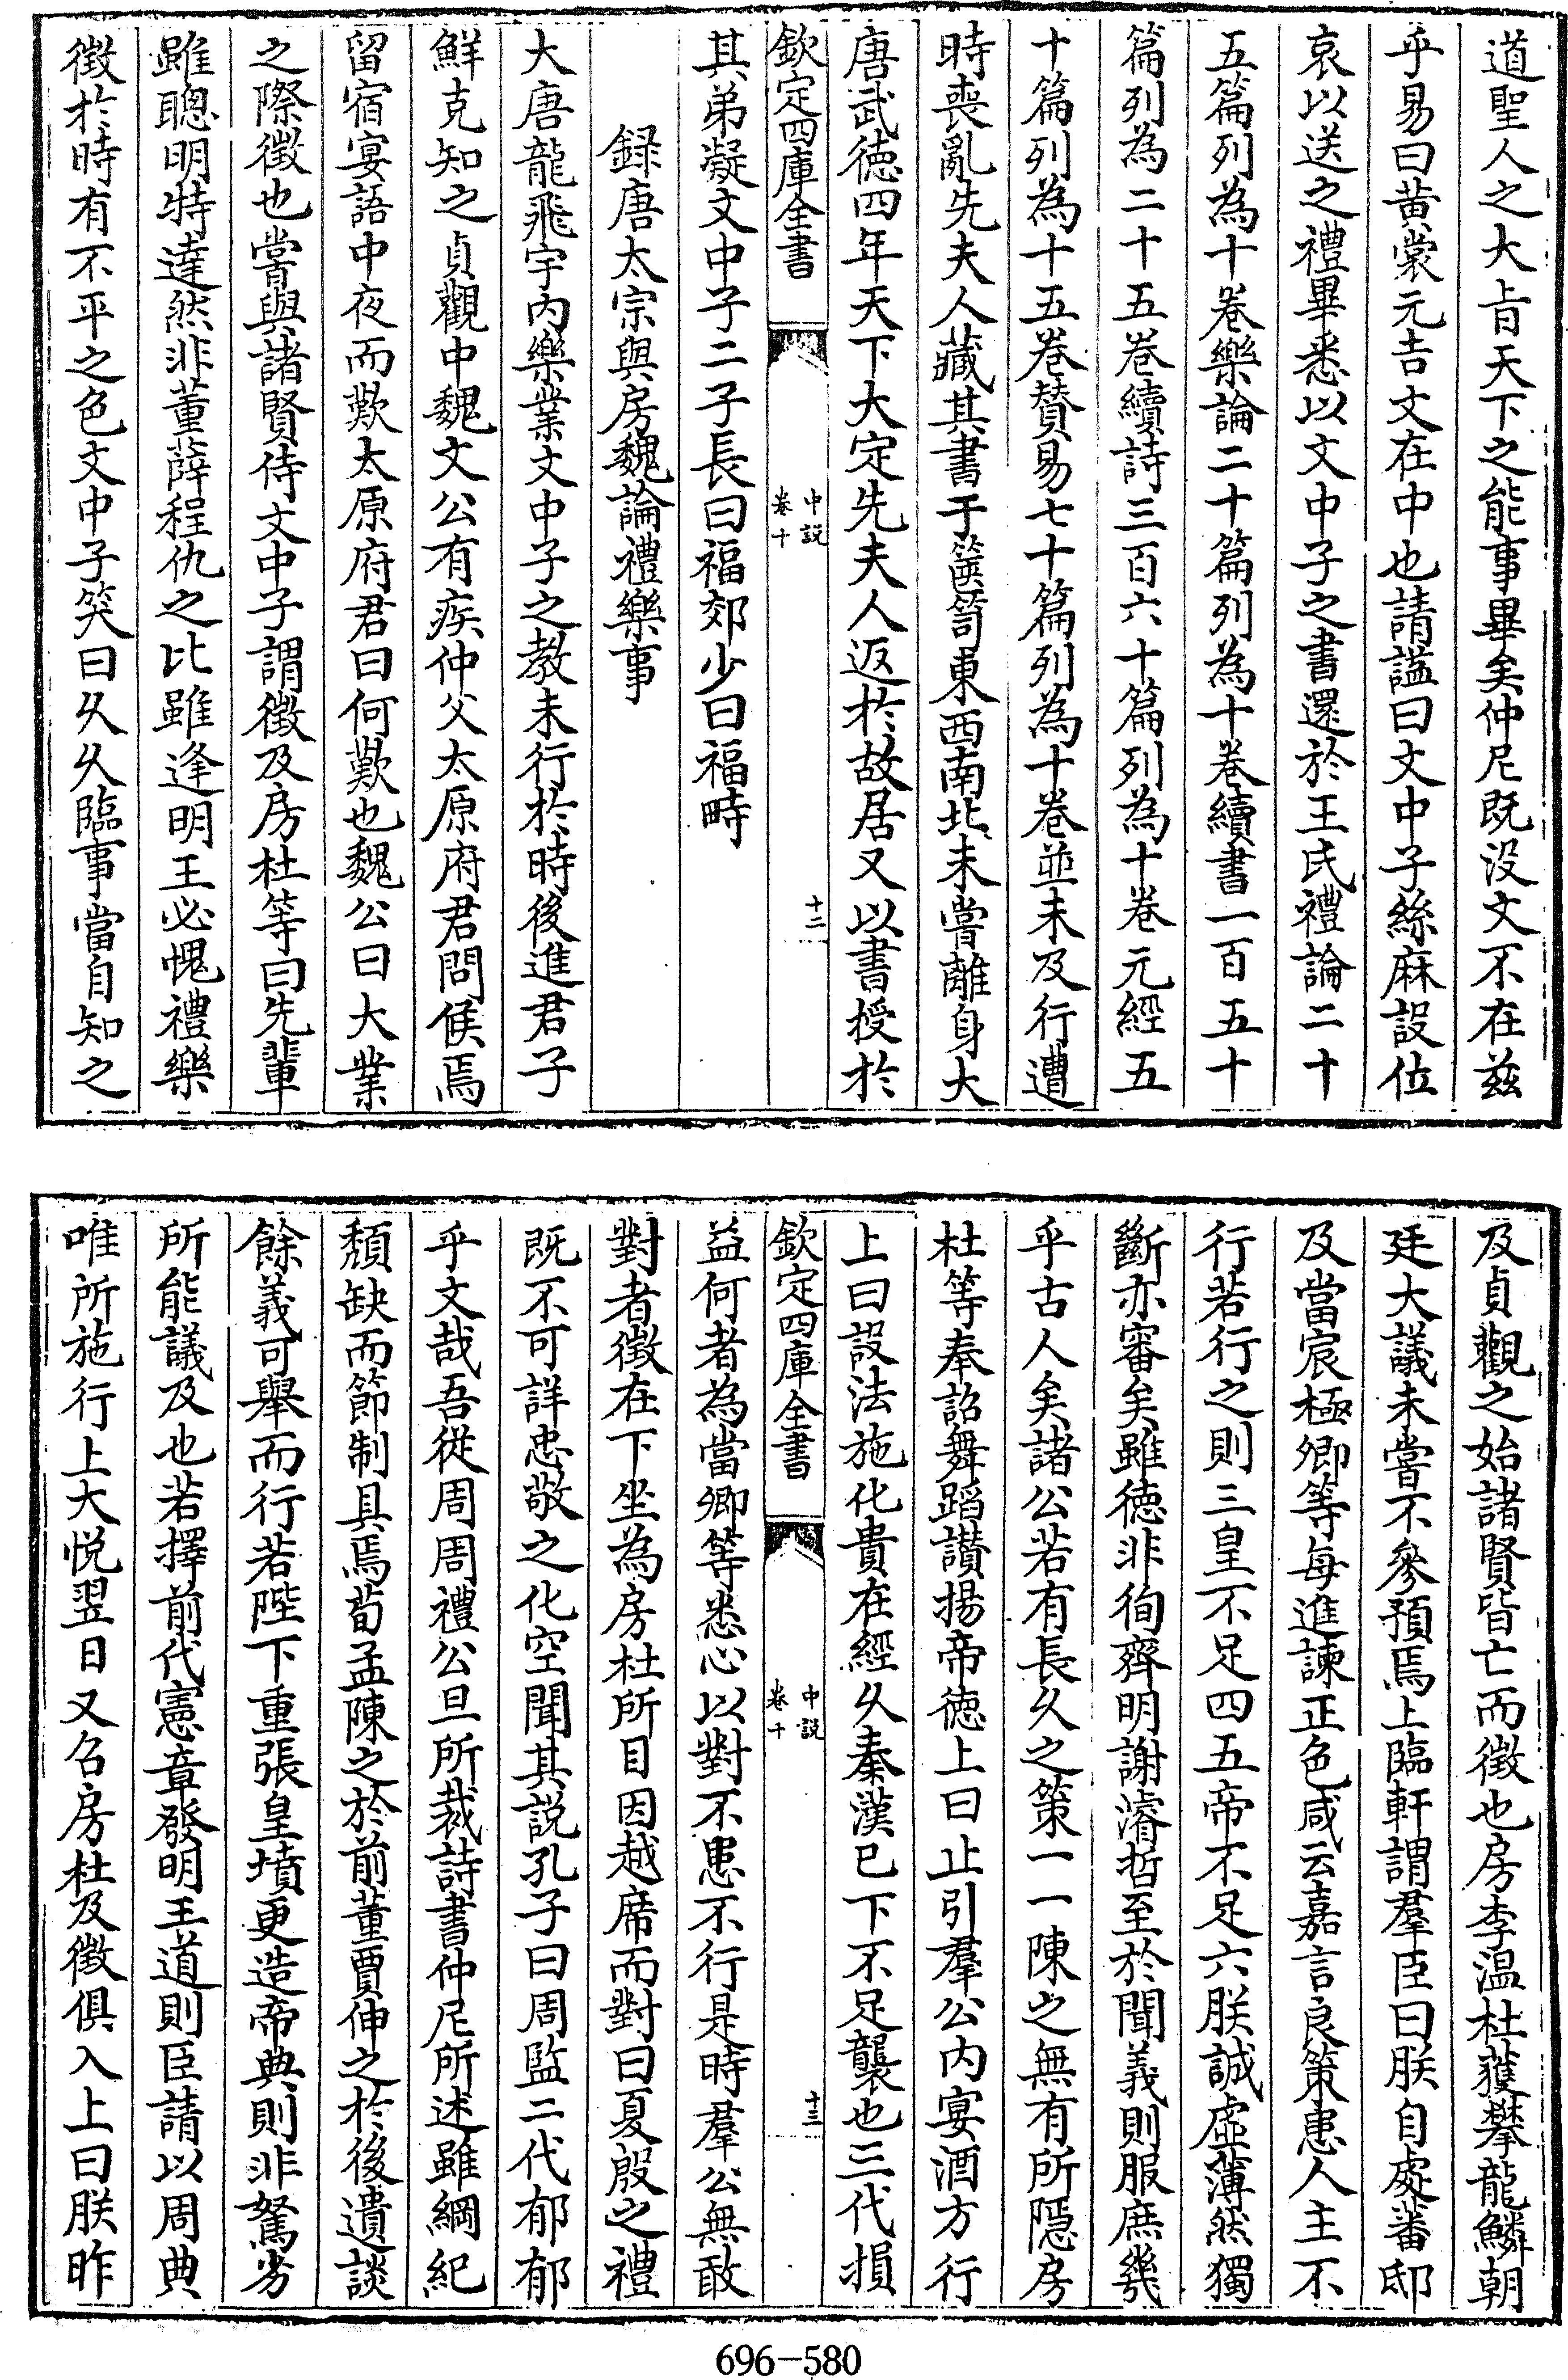 道聖人之大㫖天下之能事畢矣仲尼既没文不在兹
乎易曰黄裳元吉文在中也請諡曰文中子絲麻設位
哀以送之禮畢悉以文中子之書還於王氏禮論二十
五篇列為十卷樂論二十篇列為十卷續書一百五十
篇列為二十五卷續詩三百六十篇列為十卷元經五
十篇列為十五卷賛易七十篇列為十卷並未及行遭
時喪亂先夫人藏其書于篋笥東西南北未嘗離身大
唐武徳四年天下大定先夫人返於故居又以書授於
欽定四庫全書
中説
卷十
十二
其弟凝文中子二子長曰福郊少曰福畤
録唐太宗與房魏論禮樂事
大唐龍飛宇内樂業文中子之教未行於時後進君子
鮮克知之貞觀中魏文公有疾仲父太原府君問候焉
留宿宴語中夜而歎太原府君曰何歎也魏公曰大業
之際徴也嘗與諸賢侍文中子謂徴及房杜等曰先輩
雖聰明特達然非董薛程仇之比雖逢明王必愧禮樂
徴於時有不平之色文中子笑曰乆乆臨事當自知之
及貞觀之始諸賢皆亡而徴也房李温杜獲攀龍鱗朝
廷大議未嘗不參預焉上臨軒謂羣臣曰朕自處蕃邸
及當宸極卿等每進諫正色咸云嘉言良策患人主不
行若行之則三皇不足四五帝不足六朕誠虛薄然獨
斷亦審矣雖徳非徇齊明謝濬哲至於聞義則服庶㡬
乎古人矣諸公若有長乆之策一一陳之無有所隱房
杜等奉詔舞蹈讃揚帝徳上曰止引羣公内宴酒方行
上曰設法施化貴在經乆秦漢已下不足襲也三代損
欽定四庫全書
中説
卷十
十三
益何者為當卿等悉心以對不患不行是時羣公無敢
對者徴在下坐為房杜所目因越席而對曰夏殷之禮
既不可詳忠敬之化空聞其説孔子曰周監二代郁郁
乎文哉吾從周周禮公旦所裁詩書仲尼所述雖綱紀
頽缺而節制具焉荀孟陳之於前董賈伸之於後遺談
餘義可舉而行若陛下重張皇墳更造帝典則非駑劣
所能議及也若擇前代憲章發明王道則臣請以周典
唯所施行上大悦翌日又召房杜及徴俱入上曰朕昨
696-580